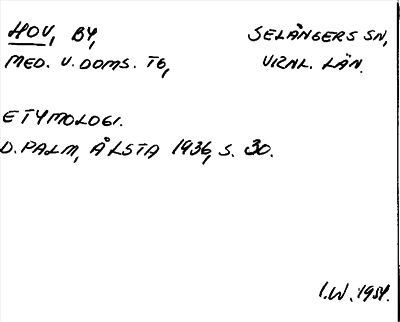 HOV, BY, SELÅNGERS SN,
MED. V. DOMS. TG, VRNL. LÄN.
ETYMOLOGI.
D. PALM, ÅLSTA 1936, S. 30.
I.W. 1951.